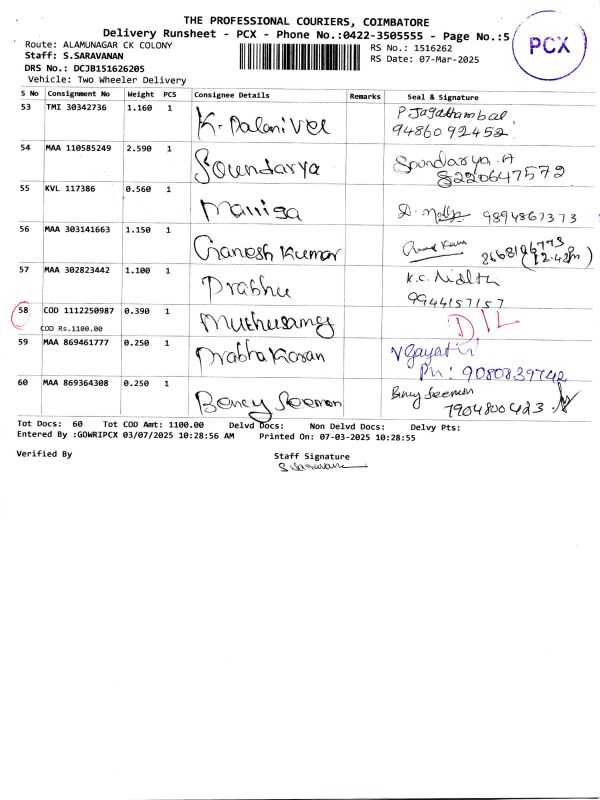 THE PROFESSIONAL COURIERS, COIMBATORE
Delivery Runsheet - PCX - Phone No.:0422-3505555 - Page No.:5
PCX
Route: ALAMUNAGAR CK COLONY
RS No.: 1516262
Staff: S.SARAVANAN
RS Date: 07-Mar-2025
DRS No.: DCJB151626205
Vehicle: Two Wheeler Delivery
S No Consignment No Weight PCS Consignee Details Remarks Seal & Signature
53 TMI 30342736 1.160 1 K. Palanivel P Jagathambal
9486092452
54 MAA 110585249 2.590 1 Soundarya Soundarya.A
8220647572
55 KVL 117386 0.560 1 Manisa 9894867373
56 MAA 303141663 1.150 1 Ganesh Kumar
57 MAA 302823442 1.100 1 Prabhu K.C.
9944157157
58 COD 1112250987 0.390 1 Muthusamy D/L
COD Rs.1100.00
59 MAA 869461777 0.250 1 Prabhakaran V Gayatri
Ph: 9080839742
60 MAA 869364308 0.250 1 Bency Seemon Bincy Seemon
7904800423
Tot Docs: 60 Tot COD Amt: 1100.00 Delvd Docs: Non Delvd Docs: Delvy Pts:
Entered By :GOWRIPCX 03/07/2025 10:28:56 AM Printed On: 07-03-2025 10:28:55
Verified By Staff Signature
S. Saravanan